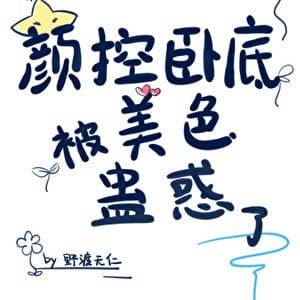 颜控卧底
被美色
蛊惑了
by 野渡无仁